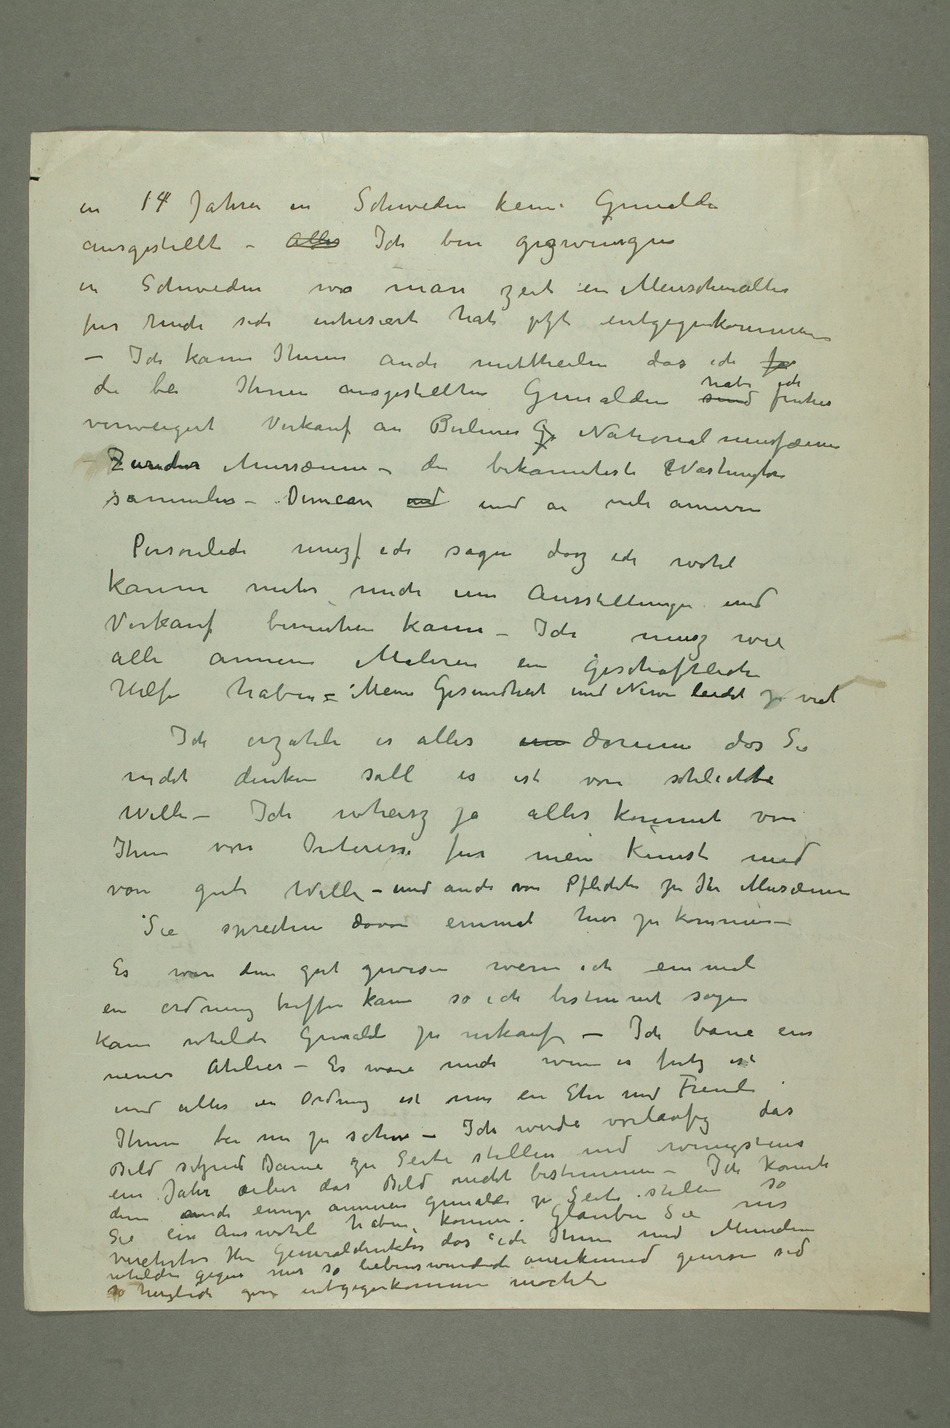 in 14 Jahren in Schweden keine Gemälde
ausgestellt – Alles Ich bin gezwungen
in Schweden wo man zeit ein Menschenalter
für mich sich interesiert hat jtzt entgegenkommen
– Ich kann Ihnen auch mittheilen das ich
die bei Ihnen ausgestellten Gemälden sind habe ich früher
verweigert Verkauf an Berliner G Nationalmusæum
Züricher Musæum – die bekannteste Washington
sammler – Duncan und und an viele annere
Personlich musz ich sagen dasz ich wohl
kaum mehr mich um Ausstellungen und
Verkauf bemühen kann – Ich musz wie
alle anneren Maleren ein geschäftliche
Hülfe haben – Meine Gesundheit und Nerven leidet zu viel
Ich erzähle es alles um darum das Sie
nicht denken soll es ist von schlechte
Wille – Ich wheisz ja alles kommt von
Ihnen von Interesse für meine Kunst und
von gute Wille – und auch von Pflichte zu Ihr Musæum
Sie sprechen davon einmal hier zu kommen –
Es wäre dann gut gewesen wenn ich einmal
ein ordnung treffen kann so ich bestimmt sagen
kann whelche Gemälde zu verkaufen – Ich baue ein
neues Atelier – Es wäre mich wenn es fertig ist
und alles in Ordnung ist nur ein Ehre und Freude
Ihnen bei mir zu sehen – Ich werde vorläufig das
Bild sitzend Dame zu Seite stellen und wenigstens
ein Jahr über das Bild nicht bestimmen – Ich könnte
dann auch einige anneren Gemälde zu Seite stellen so
Sie ein Auswahl haben können. Glauben Sie mir
verehrter Herr Generaldirektor das ich Ihnen und München
whelche gegen mir so liebenswürdich anerkennend gewesen sid
so herzlich gern entgegenkommen möchte